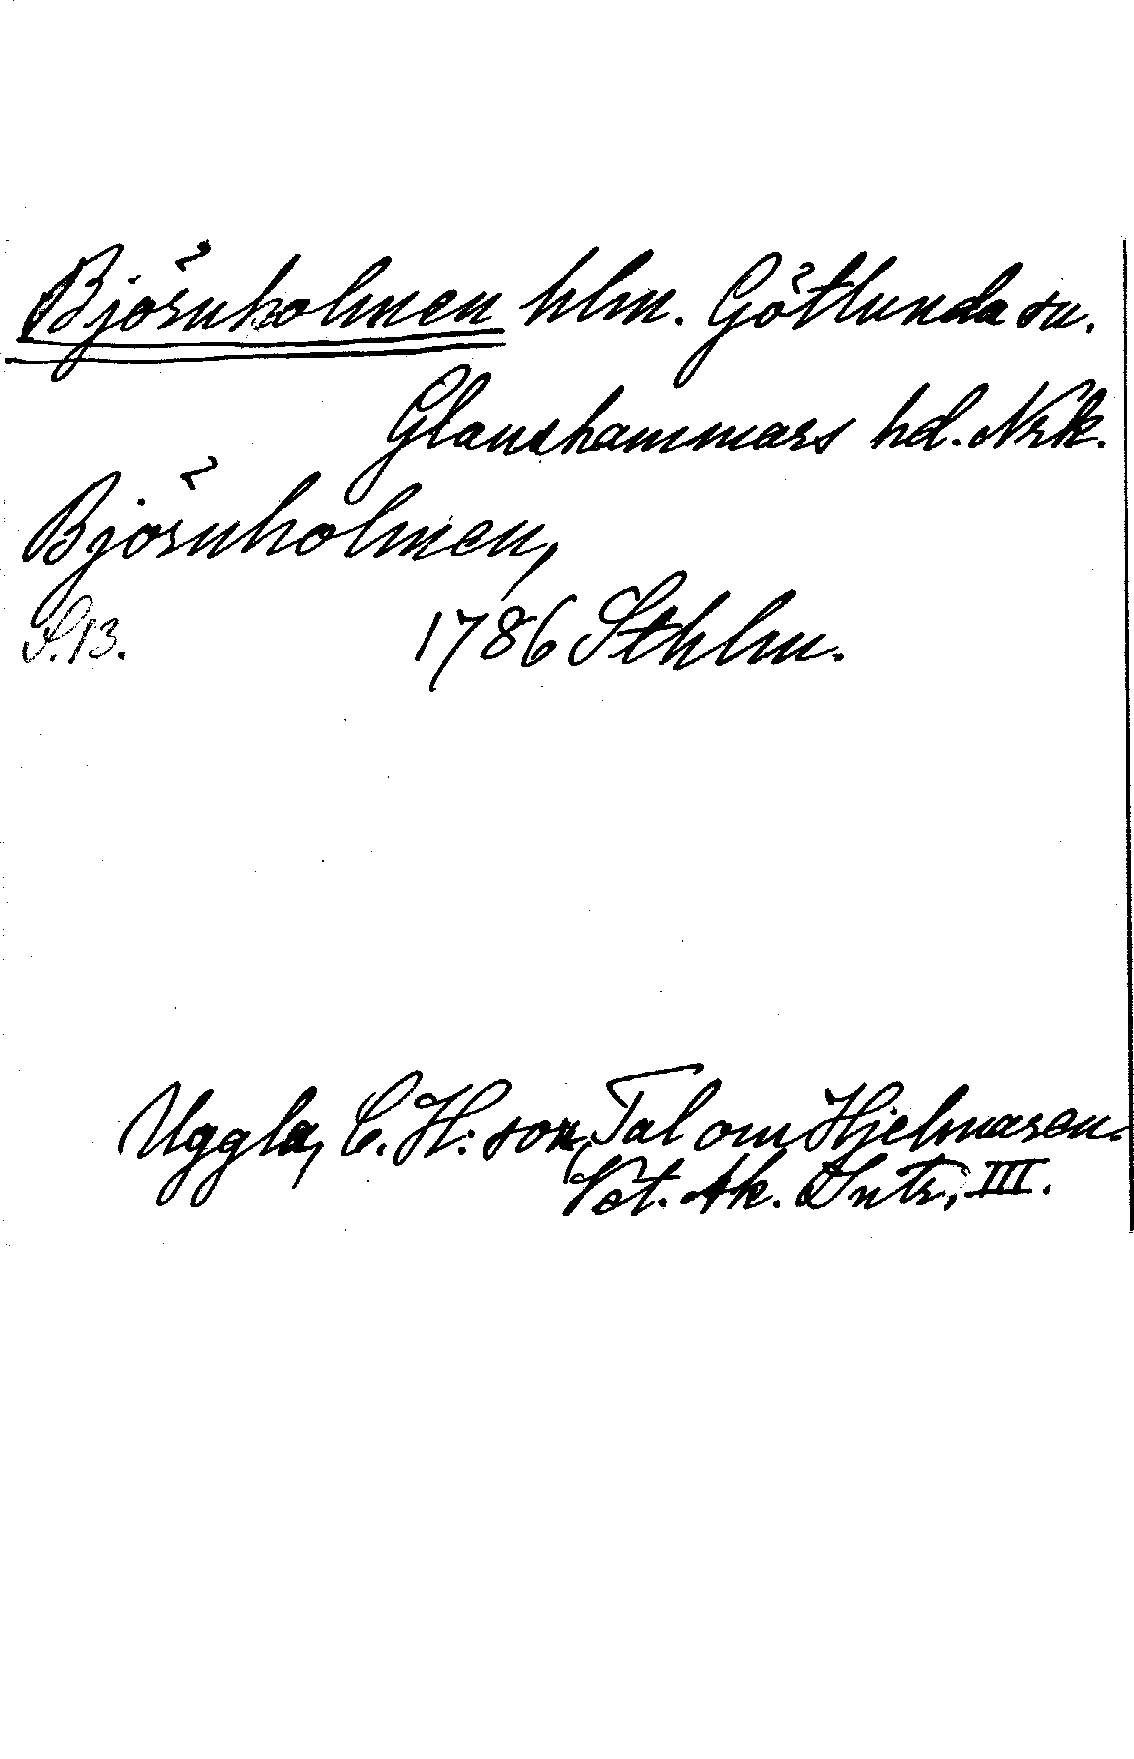 Björnholmen hlm. Götlunda sn.
Glanshammars hd. Nrk.
Björnholmen,
S.13. 1786 Sthlm.
Uggla, C. H:son, Tal om Hjelmaren.
Vet. Ak. Intr. III.